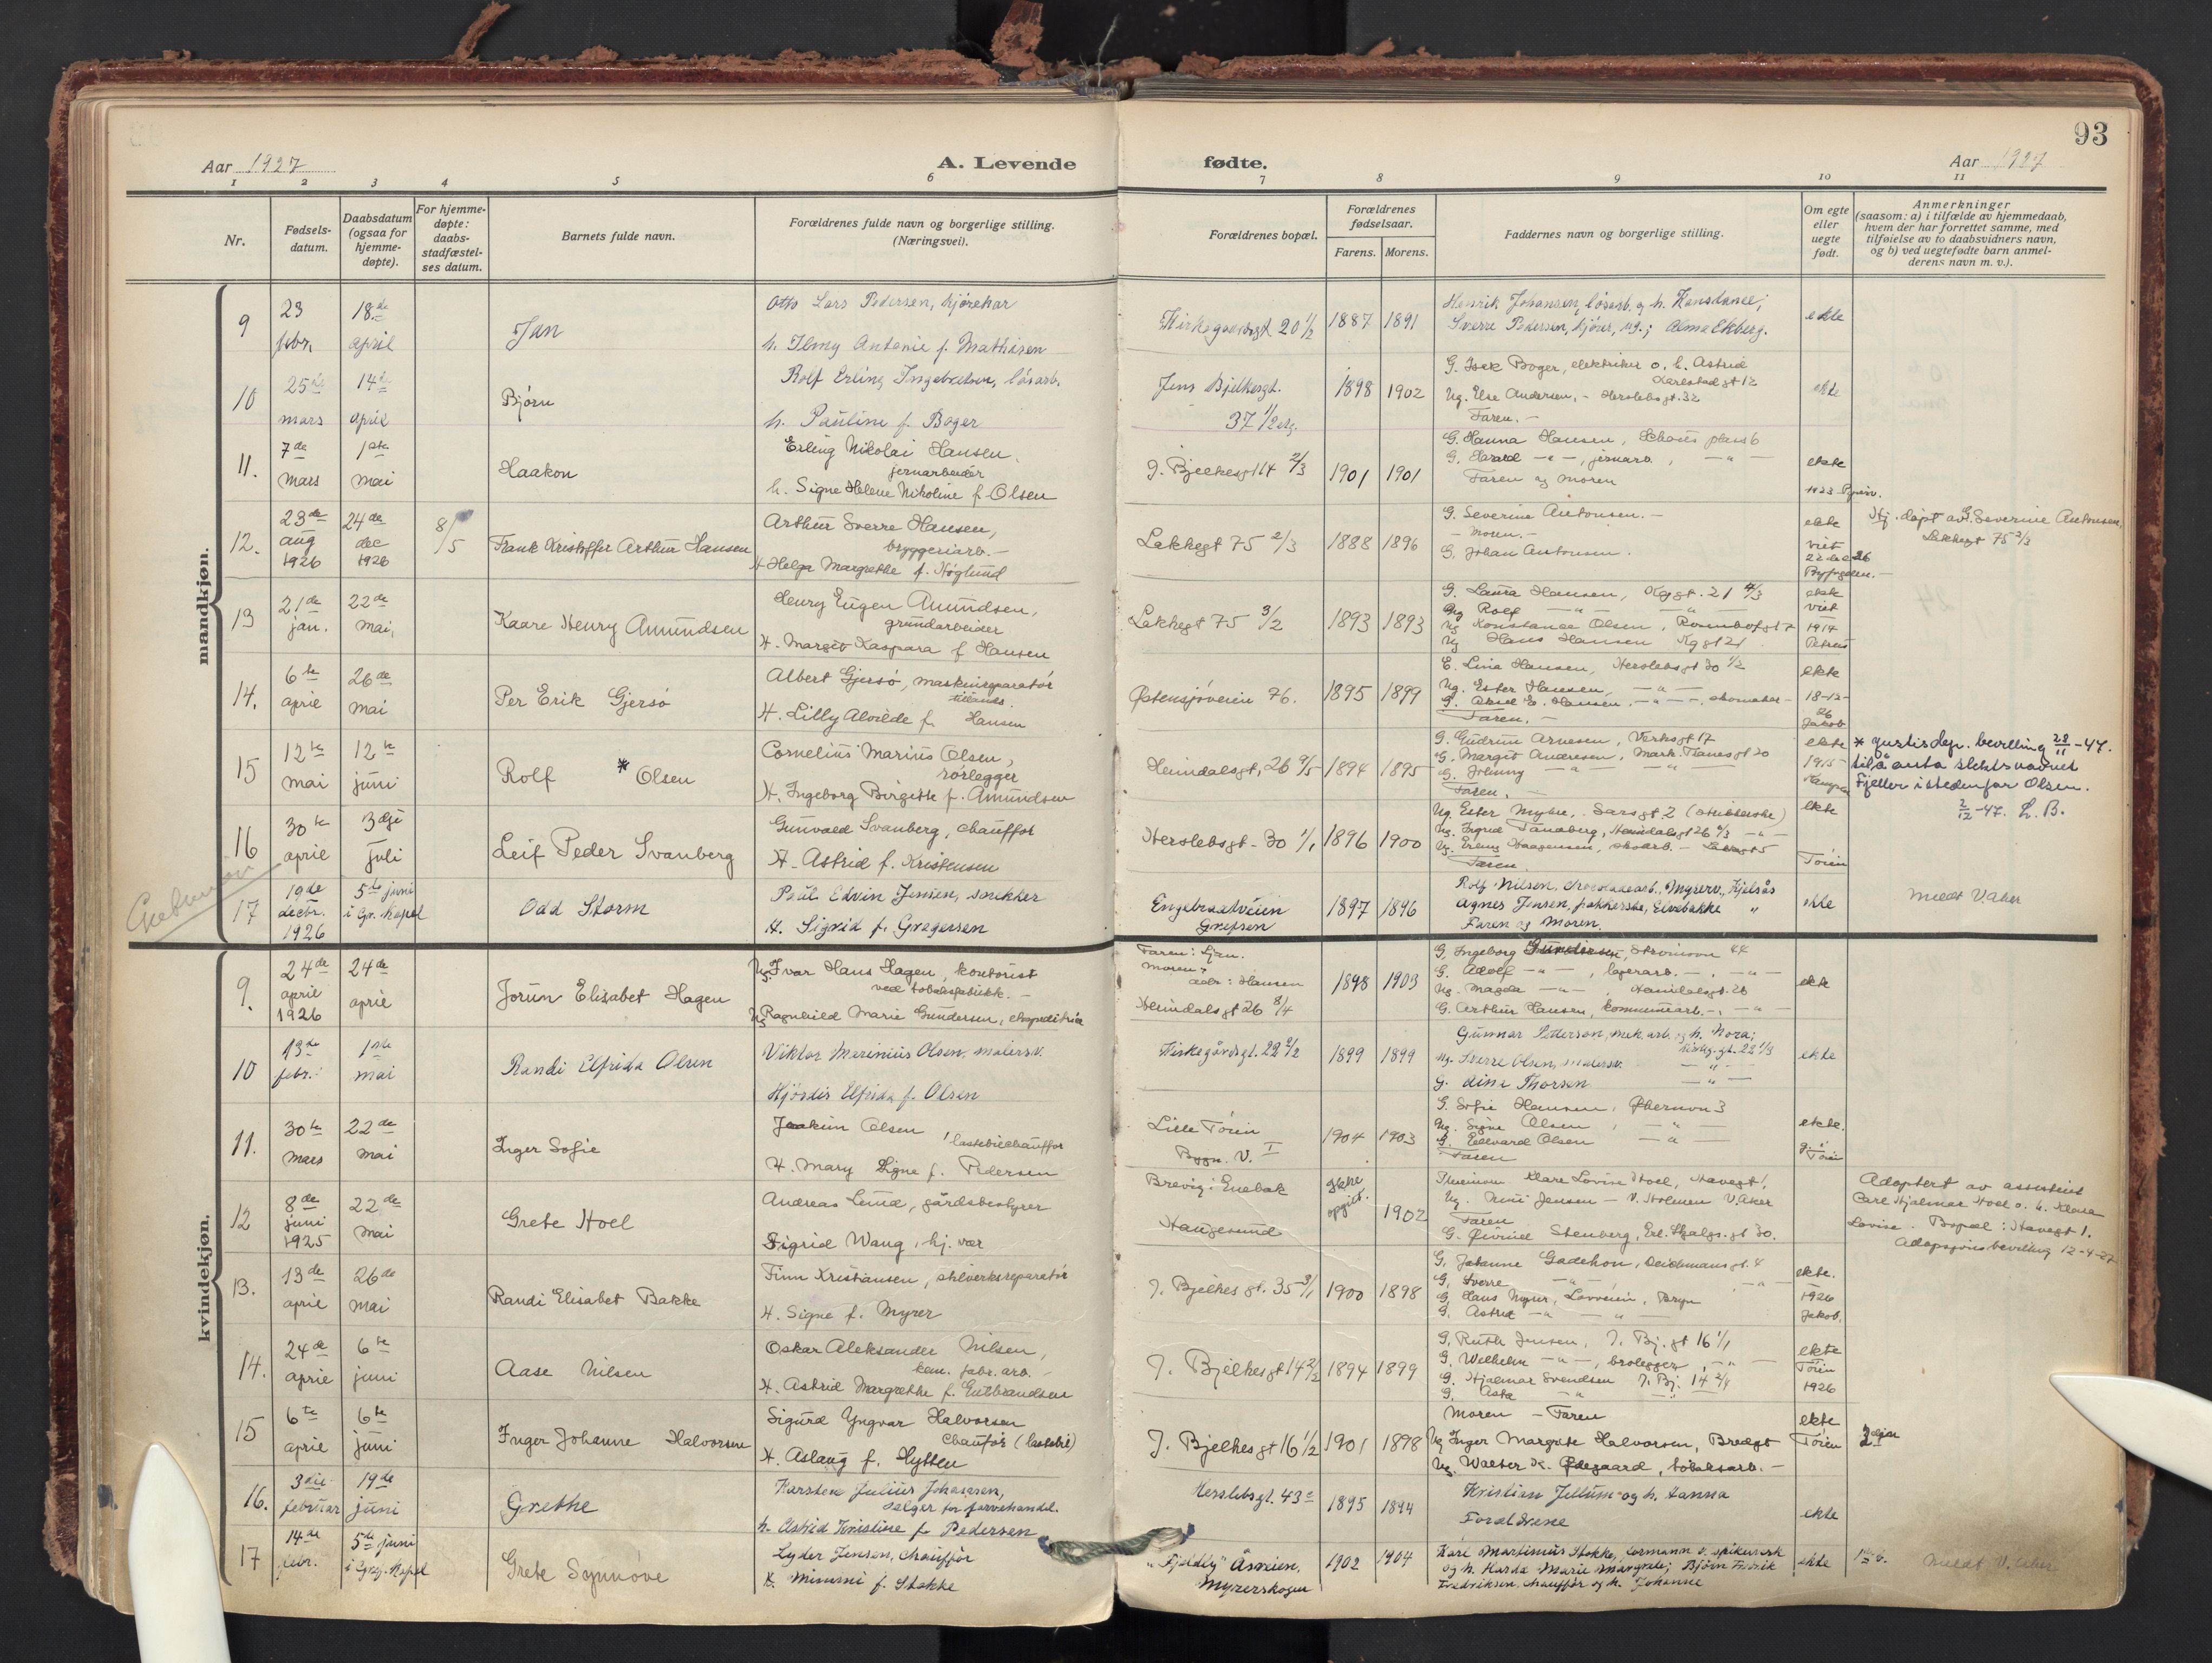 93
Aar 1927
A. Levende fødte.
Aar 1927
1 2 3 4 5 6 7 8 9 10 11
Nr.
Fødsels-
datum.
Daabsdatum
(ogsaa for
hjemme-
døpte).
For hjemme-
døpte:
daabs-
stadfæstel-
ses datum.
Barnets fulde navn.
Forældrenes fulde navn og borgerlige stilling.
(Næringsvei).
Forældrenes bopæl.
Forældrenes
fødselsaar.
Farens. Morens.
Faddernes navn og borgerlige stilling.
Om egte
eller
uegte
født.
Anmerkninger
(saasom: a) i tilfælde av hjemmedaab,
hvem der har forrettet samme, med
tilføielse av to daabsvidners navn,
og b) ved uegtefødte barn anmel-
derens navn m. v.).
mandkjøn.
9
23
febr.
18de
april
Jan
Otto Lars Pedersen, kjørekar
h. Ilmy Antonie f. Mathisen
Kirkegaardsgt 20 1/2
1887 1891
Henrik Johansen, løsarb. og h. Konstance;
Sverre Pedersen, kjører, ug.; Alma Ekberg.
ekte
10
25de
mars
14de
april
Bjørn
Rolf Erling Ingebretsen, løsarb.
h. Pauline f. Boger
Jens Bjelkesgt.
37 1/2 etg.
1898 1902
G. Isak Boger, elektriker o. h. Astrid
Karlstadgt 12
Ug. Else Andersen, - Herslebsgt. 32
Faren. -
ekte
11.
7de
mars
1ste
mai
Haakon
Erling Nikolai Hansen,
jernarbeider
h. Signe Helene Nikoline f. Olsen
J. Bjelkesgt 14 2/3
1901 1901
G. Hanna Hansen, Schous plass 6
G. Harald -"-, jernarb., -"-
Faren og moren
ekte
1923
12.
23de
aug
1926
24de
dec
1926
8/5
Frank Kristoffer Arthur Hansen
Arthur Sverre Hansen,
bryggeriarb. -
H. Helga Margrethe f. Høglund
Lakkegt 75 2/3
1888 1896
G. Severine Antonsen. -
- Moren. -
G. Johan Antonsen.
ekte
viet
22 26
Byfogden. -
Hj. døpt av G. Severine Antonsen,
Lakkegt 75 2/3
13
21de
jan.
22de
mai,
Kaare Henry Amundsen
Henry Eugen Amundsen,
grundarbeider
H. Margit Kaspara f. Hansen
Lakkegt 75 3/2
1893 1893
G. Laura Hansen, Kggt. 21 4/3
Ug Rolf -"- -"-
Ug Konstance Olsen, Rosenhofgt 7
Ug Hans Hansen Kggt 21
ekte
viet
1914
Petrus
14.
6te
april
26de
mai
Per Erik Gjersø
Albert Gjersø, maskinreparatør
tillands.
H. Lilly Alvilde f. Hansen
Østensjøveien 76.
1895 1899
E. Lina Hansen, Herslebsgt 30 1/2
Ug. Ester Hansen, -"-
G. Aksel E. Hansen. -"-, skomaker -
Faren. -
ekte
18-12-
26
Jakob
15
12te
mai
12te
juni
Rolf * Olsen
Cornelius Marius Olsen,
rørlegger
H. Ingeborg Birgitte f. Amundsen
Heimdalsgt, 26 9/5
1894 1895
G. Gudrun Arnesen, Verksgt 17
G. Margit Andresen, Mark. Thanesgt 20
G. Johnny -"- -"-
Faren. -
ekte
1915
* Justisdep. bevilling 28/11 -47.
til å anta slektsnavnet
Fjeller istedenfor Olsen.
2/12 -47. L. B.
16
30te
april
3dje
juli
Leif Peder Svanberg
Gunvald Svanberg, chauffør
H. Astrid f. Kristensen
Herslebsgt - 30 1/1
1896 1900
Ug. Ester Myhre, Sarsgt. 2
Ug. Ingrid Tandberg, Heimdalsgt 26 9/3 -"-
Ug. Erling Haagensen, skoarb. -
Faren
ekte
Tøien
17
19de
decbr.
1926
5te juni
i Gr. Kapel
Odd Storm
Paul Edvin Jensen, snekker
H. Sigrid f. Gregersen
Engebraatveien
Grefsen
1897 1896
Rolf Nilsen, chocoladearb., Myrerv., Kjelsås
Agnes Jensen, pakkerske, Elvebakke "
Faren og Moren.
ekte
Meldt V. Aker
kvindekjøn.
9.
24de
april
1926
24de
april
Jorun Elisabet Hagen
Ug. Ivar Hans Hagen, kontorist
ved tobaksfabrikk. -
Ug Ragnhild Marie Gundersen, ekspeditrice
Faren: Ljan.
Moren:
adr: Hansen
Heimdalsgt 26 8/4
1898 1903
G. Ingeborg Gundersen, 44
G. Adolf -"-, lagerarb. -, -"-
Ug. Magda -"-, Heimdalsgt. 26
G. Arthur Hansen, kommunearb. -, -"-
ekte
10
13de
febr.
1ste
mai
Randi Elfrida Olsen
Viktor Marinius Olsen, malersv.
Hjørdis Elfrida f. Olsen
Kirkegårdsgt. 22 2/2
1899 1899
Gunnar Pettersen, mek. arb. og h. Nora;
Kirkeg. gt. 22 1/3
ug. Sverre Olsen, malersv. -"-
G. Dina Thorsen -"-
ekte
11.
30te
mars
22de
mai
Inger Sofie
Joakim Olsen, lastebilchauffør
H. Mary Signe f. Pedersen
Lille Tøien
Bygn. V. I
1904 1903
G. Sofie Hansen, 3
Ug. Signe Olsen, -"-
G. Edvard Olsen -"-
Faren
ekte.
g. i
Tøien
12
8de
juni
1925
22de
mai
Grete Hoel
Andreas Lund, gårdsbestyrer
Sigrid Wang, hj. vær
Brevig i Enebak
Haugesund
ikke
opgit.
1902
Klara Lovise Hoel, Havegt 1,
Ug. Jensen - V. Holmen V. Aker
Faren
G. Øivind Stenberg, Erl. Skjalgs. gt 30.
Adoptert av assistent
Carl Hjalmar Hoel o. h. Klara
Lovise. Bopæl: Havegt 1.
Adopsjonsbevilling 12-4-27
13.
13de
april
26de
mai
Randi Elisabet Bakke
Finn Kristiansen, skilverksreparatør
H. Signe f. Myrer
J. Bjelkes gt. 35 3/1
1900 1898
G. Johanne Gadehon, Deichmansgt. 4
G. Sverre -"- -"-
G. Hans Myrer, , Bryn
G. Astrid -"- -"-
ekte.
1926
Jakob.
14.
24de
april
6te
juni
Aase Nilsen
Oskar Aleksander Nilsen,
kem. fabr. arb. -
H. Astrid Margrethe f. Gulbrandsen
J. Bjelkesgt 14 2/2
1894 1899
G. Ruth Jensen, J. Bj. gt 16 1/1
G. Wilhelm -"-, brolegger, -"-
G. Hjalmar Svendsen J. Bj. 14 2/4
G. Asta -"- -"-
ekte
Tøien
1926
15
6te
april
6te
juni
Inger Johanne Halvorsen
Sigurd Yngvar Halvorsen
Chaufør (lastebil)
H. Aslaug f. Hytten
J. Bjelkesgt 16 1/2
1901 1898
Moren - Faren
Ug Inger Margrete Halvorsen, Bredgt
Ug. Walter K. Ødegaard, tobaksarb. -
ekte
Tøien
16.
3die
februar
19de
juni
Grethe
Karsten Julius Johansen,
selger for farvehandel.
h. Astrid Kristine f. Pedersen
Herslebsgt. 43 c
1895 1894
Kristian Jellum og h. Hanna
Foreldrene
ekte
17
14de
febr.
5te juni
i Gref. Kapel
Grete Synnøve
Lyder Jensen, chauffør
H. Mimmi f. Stokke
"Fjeldly" Åsveien,
Myrerskogen
1902 1904
Karl Martinius Stokke, formann v. spikerverk
og h. Karda Marie Margrete; Bjørn Fredrik
Fredriksen, chauffør og h. Johanne
ekte
Meldt V. Aker